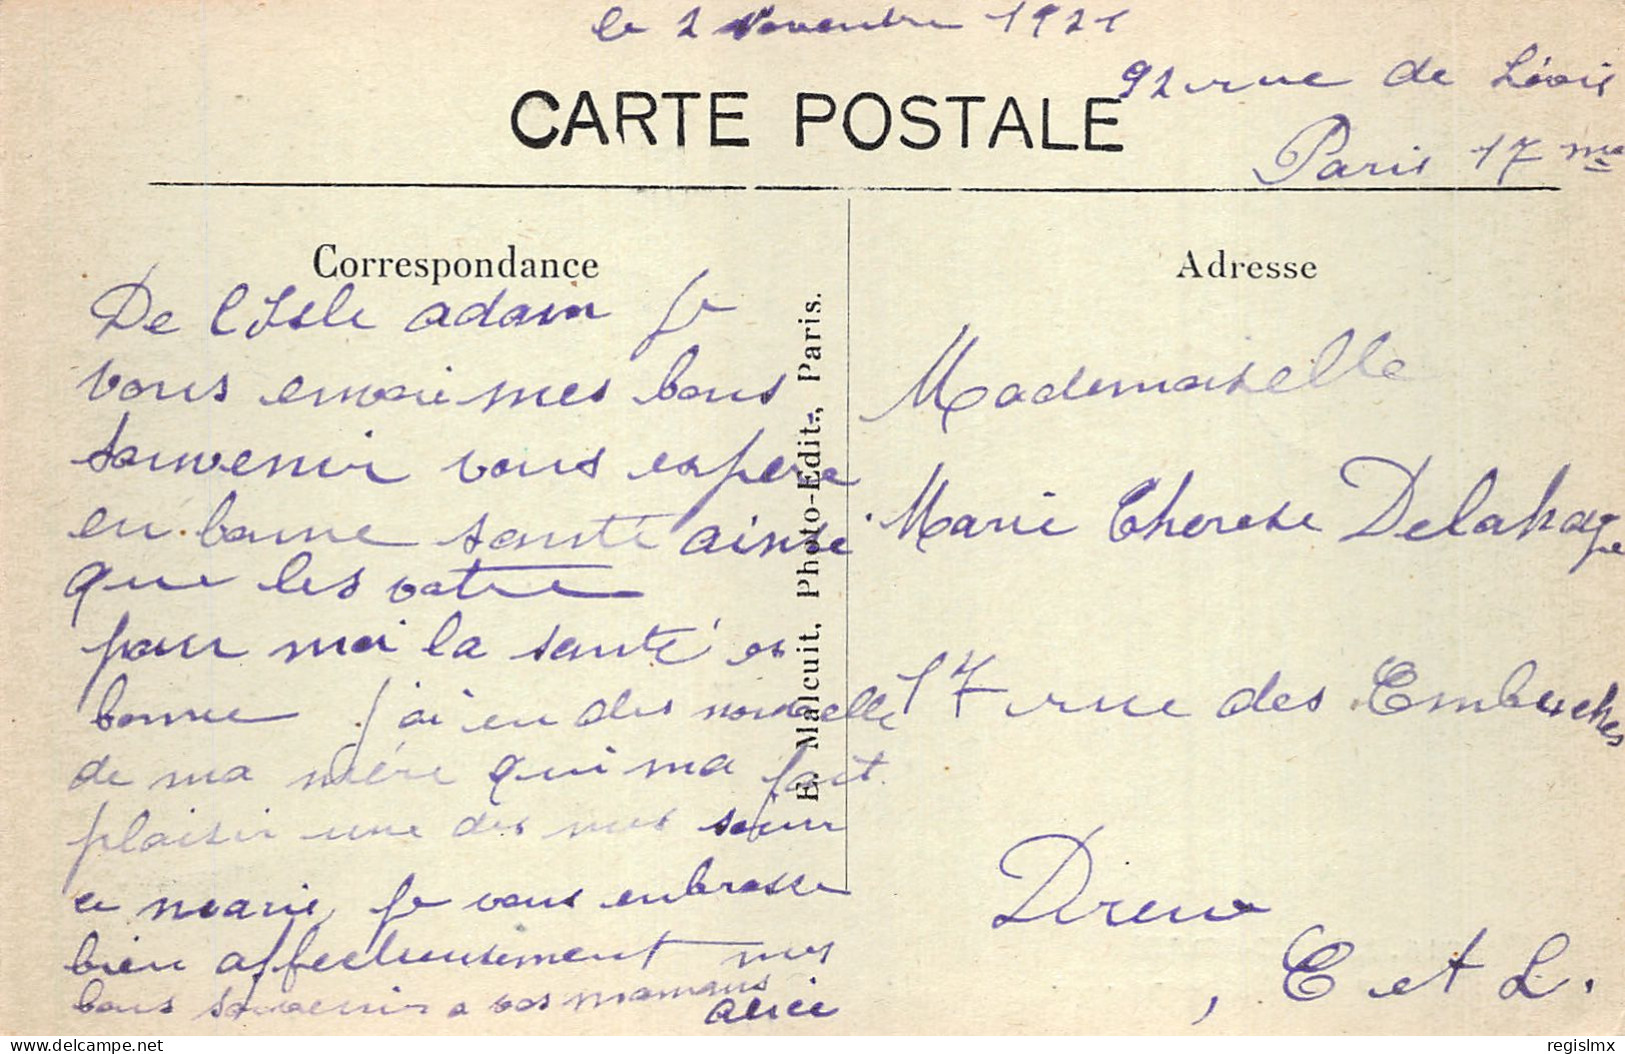 le 2 Novembre 1921
92 rue de Lévis
Paris 17 me
CARTE POSTALE
Correspondance
De l'Isle adam Je
vous envoie mes bons
souvenir vous espere
en bonne santé ainsi
que les votre
pour moi la santé es
bonne j'ai eu des nouvelle
de ma mère qui ma fait
plaisir une des mes sœur
e marié, je vous enbrasse
bien affectueusement mes
bons souvenir a vos mamans
Alice
E. Malcuit, Photo-Edit., Paris.
Adresse
Mademoiselle
Marie Therese Delahaye
17 rue des Embuches
Dreux
E et L.
delcampe.net
regislmx